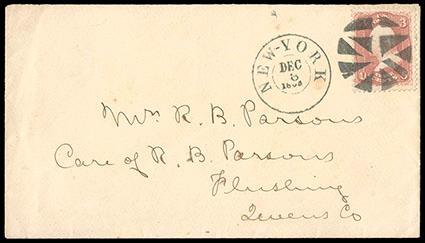 NEW-YORK
DEC
3
Mr. R. B. Parsons
Care of R. B. Parsons
Flushing
Queens Co